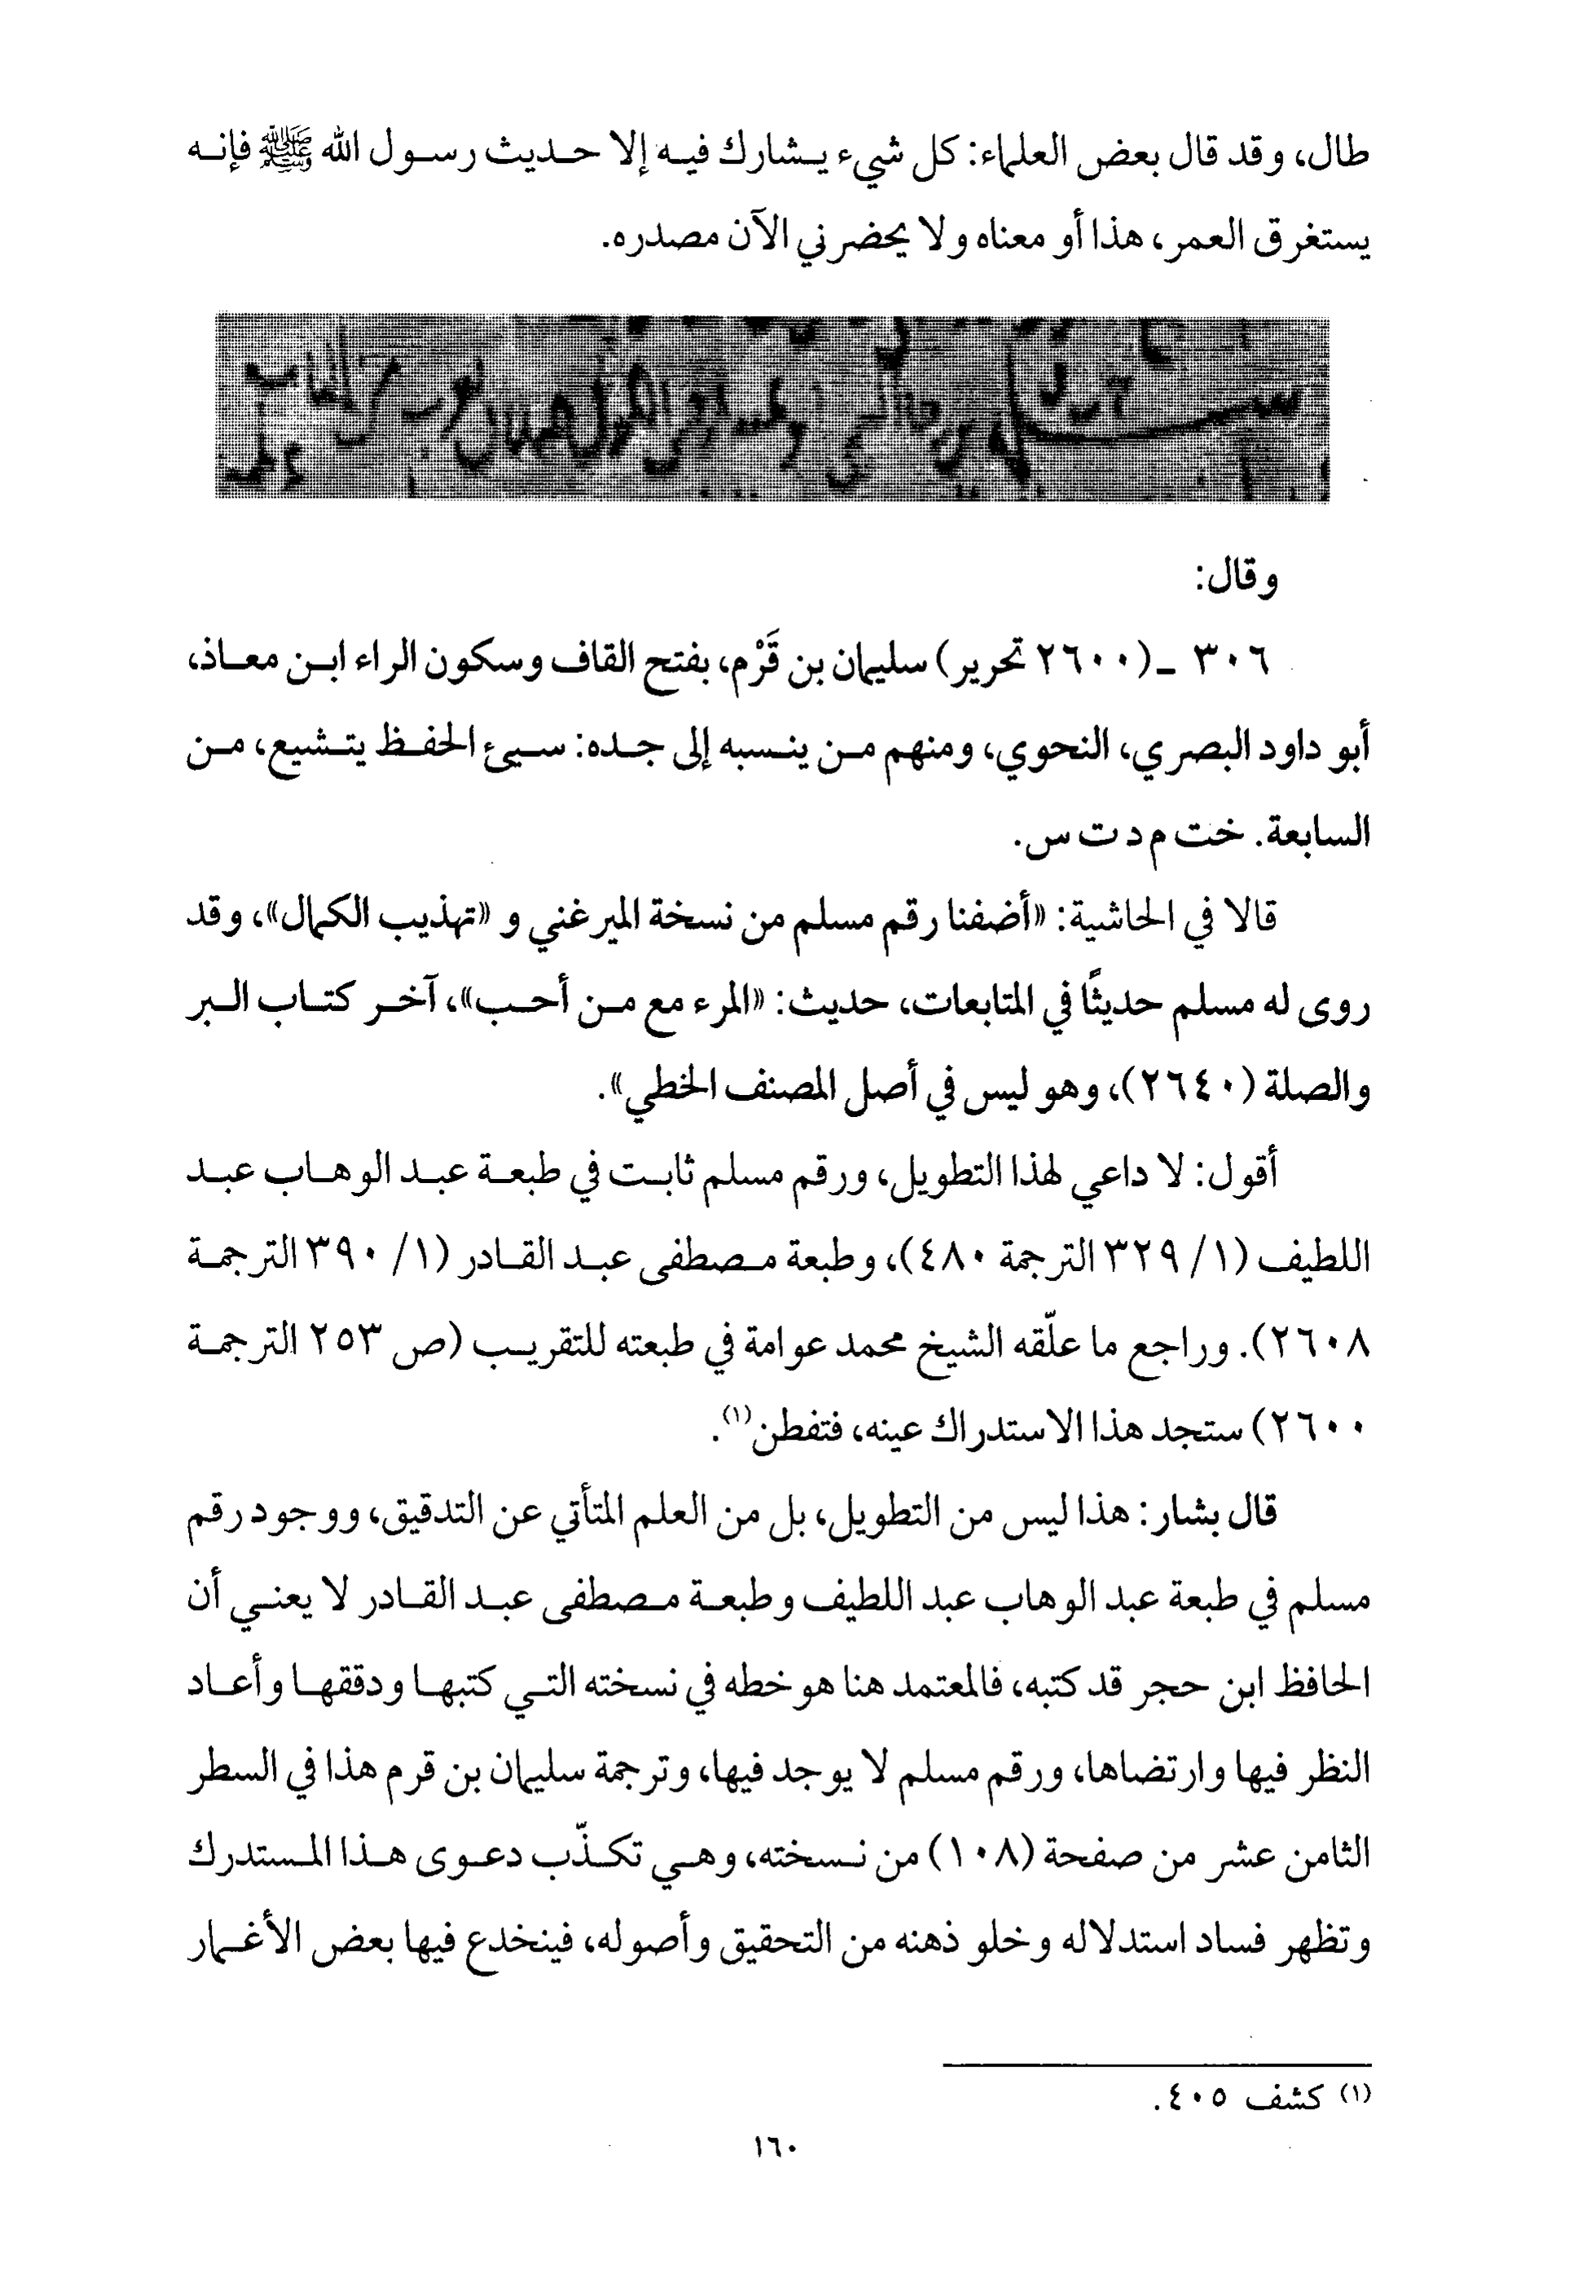 طال، وقد قال بعض العلماء: كل شيء يشارك فيه إلا حديث رسول الله ﷺ فإنه
يستغرق العمر، هذا أو معناه ولا يحضرني الآن مصدره.
وقال:
٣٠٦ ـ (٢٦٠٠ تحرير) سليمان بن قَرْم، بفتح القاف وسكون الراء ابن معاذ،
أبو داود البصري، النحوي، ومنهم من ينسبه إلى جده: سيئ الحفظ يتشيع، من
السابعة. خت م د ت س.
قالا في الحاشية: «أضفنا رقم مسلم من نسخة الميرغني و «تهذيب الكمال»، وقد
روى له مسلم حديثًا في المتابعات، حديث: «المرء مع من أحب»، آخر كتاب البر
والصلة (٢٦٤٠)، وهو ليس في أصل المصنف الخطي».
أقول: لا داعي لهذا التطويل، ورقم مسلم ثابت في طبعة عبد الوهاب عبد
اللطيف (١/ ٣٢٩ الترجمة ٤٨٠)، وطبعة مصطفى عبد القادر (١/ ٣٩٠ الترجمة
٢٦٠٨). وراجع ما علّقه الشيخ محمد عوامة في طبعته للتقريب (ص ٢٥٣ الترجمة
٢٦٠٠) ستجد هذا الاستدراك عينه، فتفطن(١).
قال بشار: هذا ليس من التطويل، بل من العلم المتأتي عن التدقيق، ووجود رقم
مسلم في طبعة عبد الوهاب عبد اللطيف وطبعة مصطفى عبد القادر لا يعني أن
الحافظ ابن حجر قد كتبه، فالمعتمد هنا هو خطه في نسخته التي كتبها ودققها وأعاد
النظر فيها وارتضاها، ورقم مسلم لا يوجد فيها، وترجمة سليمان بن قرم هذا في السطر
الثامن عشر من صفحة (١٠٨) من نسخته، وهي تكذّب دعوى هذا المستدرك
وتظهر فساد استدلاله وخلو ذهنه من التحقيق وأصوله، فينخدع فيها بعض الأغمار
(١) كشف ٤٠٥.
١٦٠